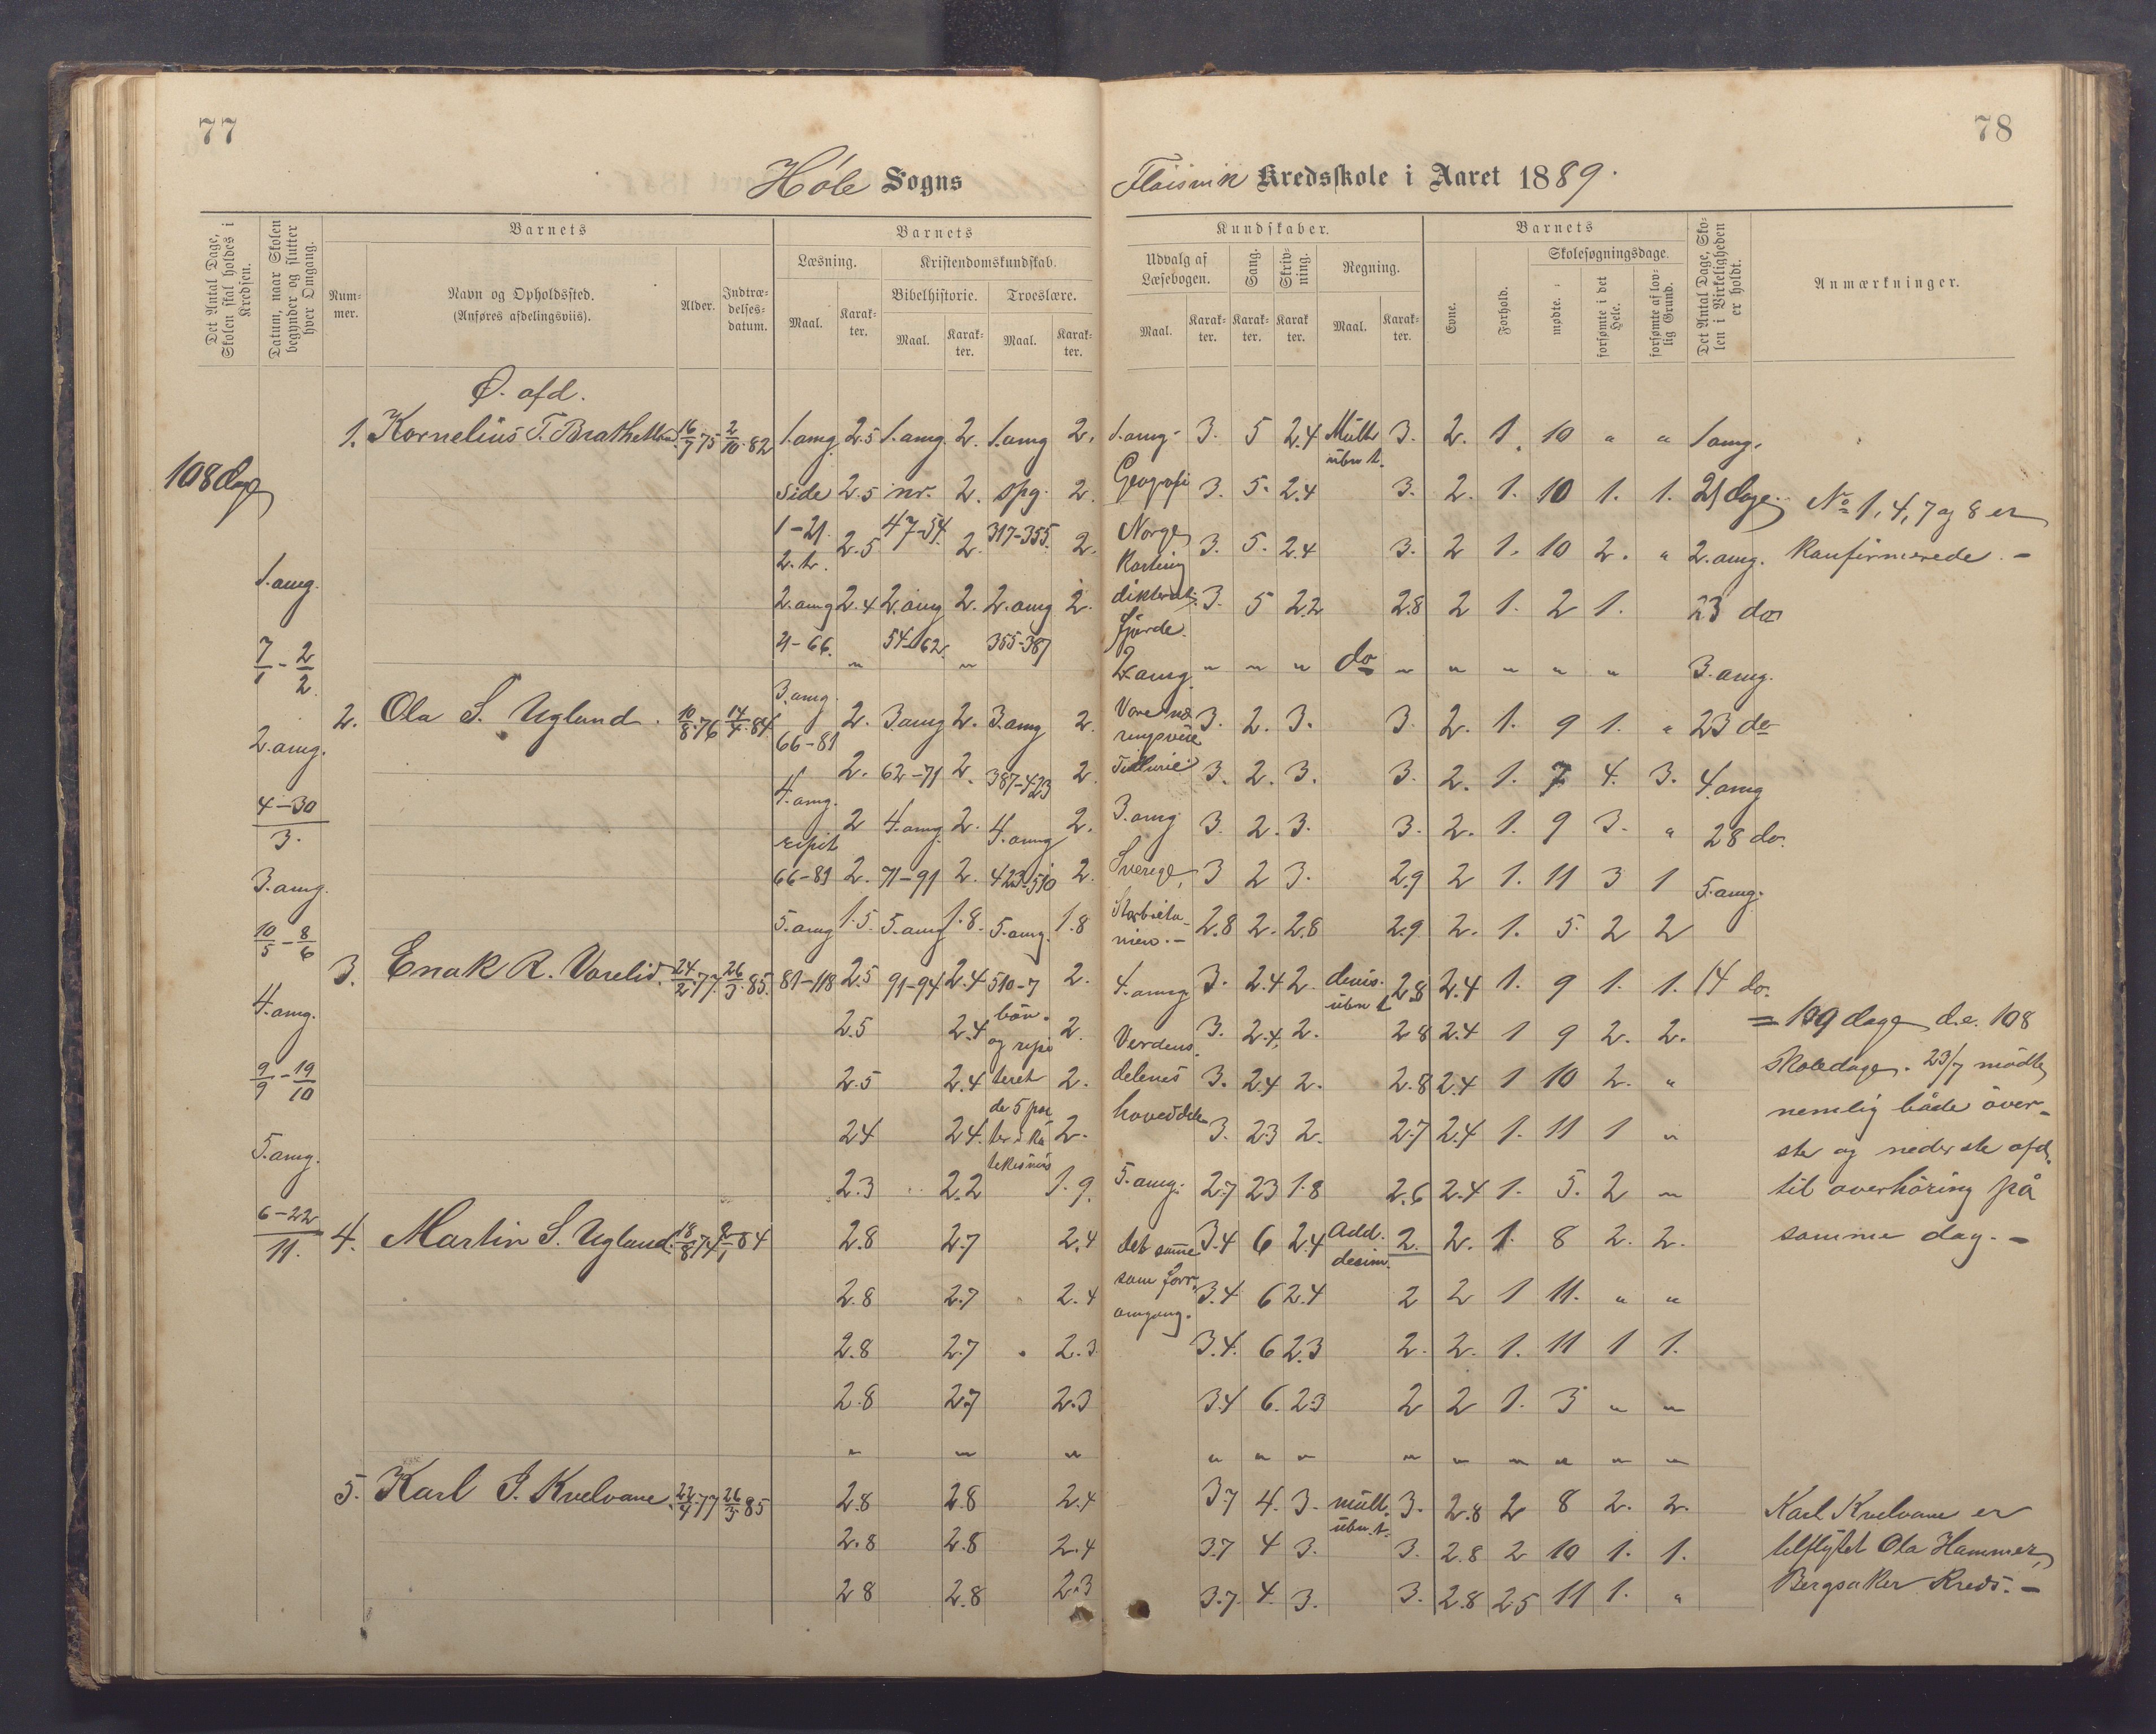 77
78
Høle Sogns
Fløisvik Kredsskole i Aaret 1889.
Det Antal Dage, Skolen skal holdes i Kredsen.
Datum, naar Skolen begynder og slutter hver Omgang.
Barnets
Nummer.
Navn og Opholdssted.
(Anføres afdelingsviis).
Alder.
Indtrædelsesdatum.
Barnets
Læsning.
Maal.
Karakter.
Kristendomskundskab.
Bibelhistorie.
Maal.
Karakter.
Troeslære.
Maal.
Karakter.
Kundskaber.
Udvalg af Læsebogen.
Maal.
Karakter.
Sang.
Karakter.
Skrivning.
Karakter.
Regning.
Maal.
Karakter.
Barnets
Evne.
Forhold.
Skolesøgningsdage.
mødte.
forsømte i det Hele.
forsømte af lovlig Grund.
Det Antal Dage, Skolen i Virkeligheden er holdt.
Anmærkninger.
Ø. afd.
108 dage
1. omg.
7/1 - 2/2
2. omg.
4-30/3.
3. omg.
10/5 - 8/6
4. omg.
9/9 - 19/10
5. omg.
6-22/11.
1. Kornelius T. 16/7 75 2/10 82 1. omg. 2.5 1. omg. 2. 1. omg 2. 1. omg. 3. 5 2.4 Mult. 3. 2. 1. 10 " " 1 omg.
ubn t.
side 2.5 nr. 2. spg. 2. Geografi 3. 5. 2.4 3. 2. 1. 10 1. 1. 21 dage.
1-21. 2.5 47-54. 2. 317-355. 2. Norge 3. 5. 2.4 3. 2 1. 10 2. " 2. omg.
2. tr.
2. omg 2.4 2. omg 2. 2. omg 2. 3. 5 2.2 2.8 2 1. 2 1. 23 do
fjorde.
21-66. " 54-62. " 355-387
2. omg. " " " do " " " " " 3. omg.
2. Ola S. Ugland. 10/8 76 14/4 84. 3. omg. 2. 3 omg 2. 3. omg 2. Vore næringsveie 3. 2. 3. 3. 2. 1. 9 1. " 23 do
66-81 2. 62-71 2. 387-423 2. 3. 2. 3. 3. 2. 1. 7 4. 3. 4. omg
4. omg. 2 4. omg. 2. 4. omg 2. 3. omg 3. 2. 3. 3. 2. 1. 9 3. " 28 do.
repit
66-81 2. 71-91 2. 423-510 2. Sverige, 3 2 3. 2.9 2 1. 11 3 1 5. omg.
5. omg 1.5. 5. omg 1.8. 5. omg. 1.8 Storbritanien. - 2.8 2. 2.8 2.9 2. 1. 5. 2 2
3. Enok R. Varelid. 24/2 77. 26/3 85. 81-118 2.5 91-94 2.4 510-7 2. 4. omg 3. 2.4 2. ubn t 2.8 2.4 1. 9 1. 1. 14 do.
bön.
2.5 2.4 og repe 2. Verdens. 3. 2.4. 2. 2.8 2.4 1 9 2. 2.
2.5 2.4 teret 2. delenes 3. 2.4 2. 2.8 2.4 1 10 2. "
de 5 par
2.4 2.4. ter i ka 2. hoveddele 3. 2.3 2. 2.7 2.4 1. 11 1 "
tekismus
2.3 2.2 1.9. 5. omg. 2.7 2.3 1.8 2.6 2.4 1. 5. 2 "
4. Martin S. Ugland. 18/8 74 84 2.8 2.7 2.4 det samme 3.4 6 2.4 Add. 2. 2. 1. 8 2. 2.
desim.
2.8 2.7 2.4 som forr. 3.4 6 2.4 2 2 1 11. " "
omgang.
2.8 2.7 2.3 3.4. 6 2.3 2. 2. 1. 11 1 1.
2.8 2.7 2.3 3.4 6. 2.3 2 2 1. 3 " "
" " " " " " " " " " " "
5. Karl J. Kvelvane. 22/4 77 26/3 85 2.8 2.8 2.4 3.7 4. 3. mult. 3. 2.8 2 8 2. 2.
ubn. t.
2.8 2.8 2.4 3.7 4 3. 3. 2.8 2 10 1. 1.
2.8 2.8 2.3 3.7. 4. 3. 3. 2.8 2.5 11 1. "
No 1, 4, 7 og 8 er
konfirmerede. -
= 109 dage, d.e. 108
skoledage. 23/7 mödte
nemlig både över-
ste og nederste afd.
til overhöring på
samme dag. -
Karl Kvelvane er
tilflytet Ola Hammer,
Bergsaker Kreds. -